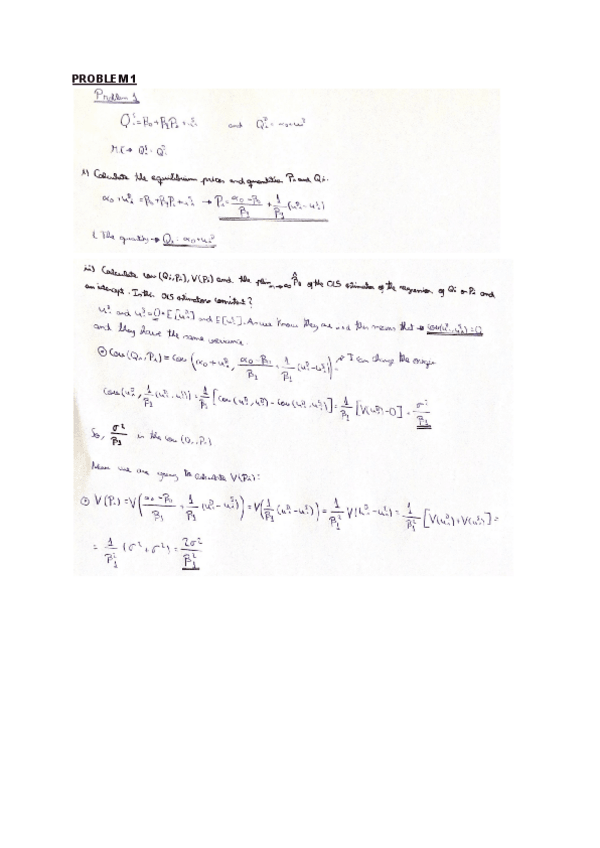 PROBLEM 1
Problem 1
Q_i^s = β₀ + β₁P_i + u_i^s and Q_i^D = α₀ + u_i^D
M.C → Q_i^s = Q_i^D
i) Calculate the equilibrium prices and quantities P_i and Q_i.
α₀ + u_i^D = β₀ + β₁P_i + u_i^s → P_i = (α₀ - β₀)/β₁ + 1/β₁ (u_i^D - u_i^s)
The quantity → Q_i = α₀ + u_i^D
ii) Calculate cov(Q_i, P_i), V(P_i) and the β̂₁ of the OLS estimator of the regression of Q_i on P_i and
an intercept. Is this OLS estimator consistent?
u_i^s and u_i^D = 0 = E[u_i^D] and E[u_i^s]. know they are and this means that → cov(u_i^D, u_i^s) = 0
and they have the same variance.
Cov(Q_i, P_i) = Cov(α₀ + u_i^D, (α₀ - β₀)/β₁ + 1/β₁ (u_i^D - u_i^s)) = I can change the
Cov(u_i^D, 1/β₁ (u_i^D - u_i^s)) = 1/β₁ [Cov(u_i^D, u_i^D) - Cov(u_i^D, u_i^s)] = 1/β₁ [V(u_i^D) - 0] = σ²/β₁
So, σ²/β₁ is the cov(Q_i, P_i)
Now we are going to calculate V(P_i):
V(P_i) = V((α₀ - β₀)/β₁ + 1/β₁ (u_i^D - u_i^s)) = V(1/β₁ (u_i^D - u_i^s)) = 1/β₁² V(u_i^D - u_i^s) = 1/β₁² [V(u_i^D) + V(u_i^s)] =
= 1/β₁² (σ² + σ²) = 2σ²/β₁²